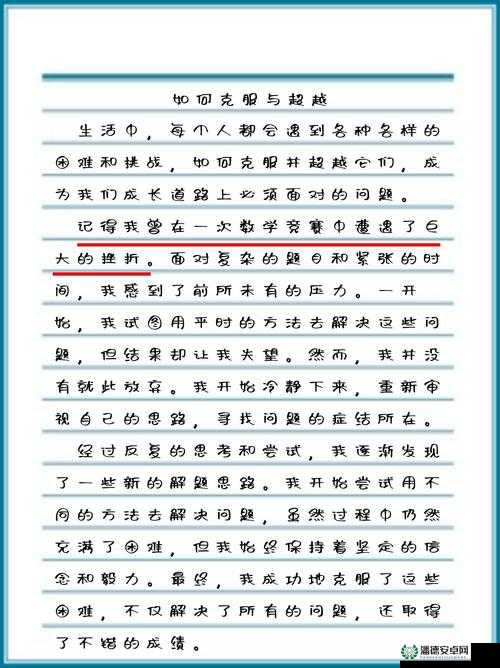 如何克服与超越
生活中，每个人都会遇到各种各样的
困难和挑战，如何克服并超越它们，成
为我们成长道路上必须面对的问题。
记得我曾在一次数学竞赛中遭遇了巨
大的挫折。面对复杂的题目和紧张的时
间，我感到了前所未有的压力。一开
始，我试图用平时的方法去解决这些问
题，但结果却让我失望。然而，我并没
有就此放弃。我开始冷静下来，重新审
视自己的思路，寻找问题的症结所在。
经过反复的思考和尝试，我逐渐发现
了一些新的解题思路。我开始尝试用不
同的方法去解决问题，虽然过程中仍然
充满了困难，但我始终保持着坚定的信
念和毅力。最终，我成功地克服了这些
困难，不仅解决了所有的问题，还取得
了不错的成绩。
潘德安卓网